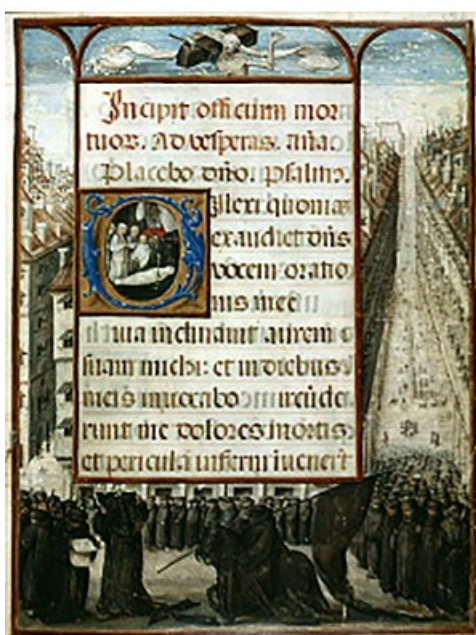 Incipit officium mor
tuor. Ad vesperas. ana
Placebo dño. Psalmꝰ.
Dilexi quoniaz
exaudiet dñs
vocem oratio
nis mee
inclinavit aurem
suam michi: et in diebus
meis invocabo
runt me dolores mortis
et pericula inferni ivenert